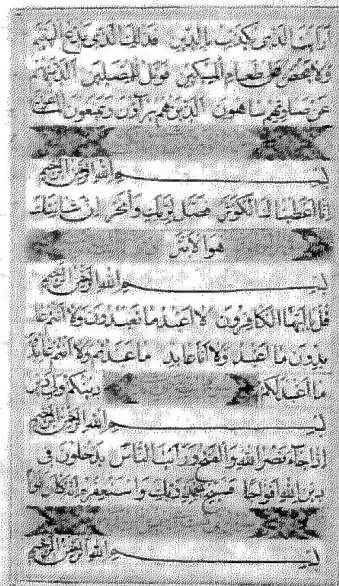 أرأيت الذي يكذب بالدين فذلك الذي يدع اليتيم
ولا يحض على طعام المسكين فويل للمصلين الذين هم
عن صلاتهم ساهون الذين هم يراؤن ويمنعون الماعون
بسم الله الرحمن الرحيم
إنا أعطيناك الكوثر فصل لربك وانحر إن شانئك
هو الأبتر
بسم الله الرحمن الرحيم
قل يا أيها الكافرون لا أعبد ما تعبدون ولا أنتم عا
بدون ما أعبد ولا أنا عابد ما عبدتم ولا أنتم عابد
ما أعبد لكم دينكم ولي دين
بسم الله الرحمن الرحيم
إذا جاء نصر الله والفتح ورأيت الناس يدخلون في
دين الله أفواجا فسبح بحمد ربك واستغفره إنه كان توابا
بسم الله الرحمن الرحيم